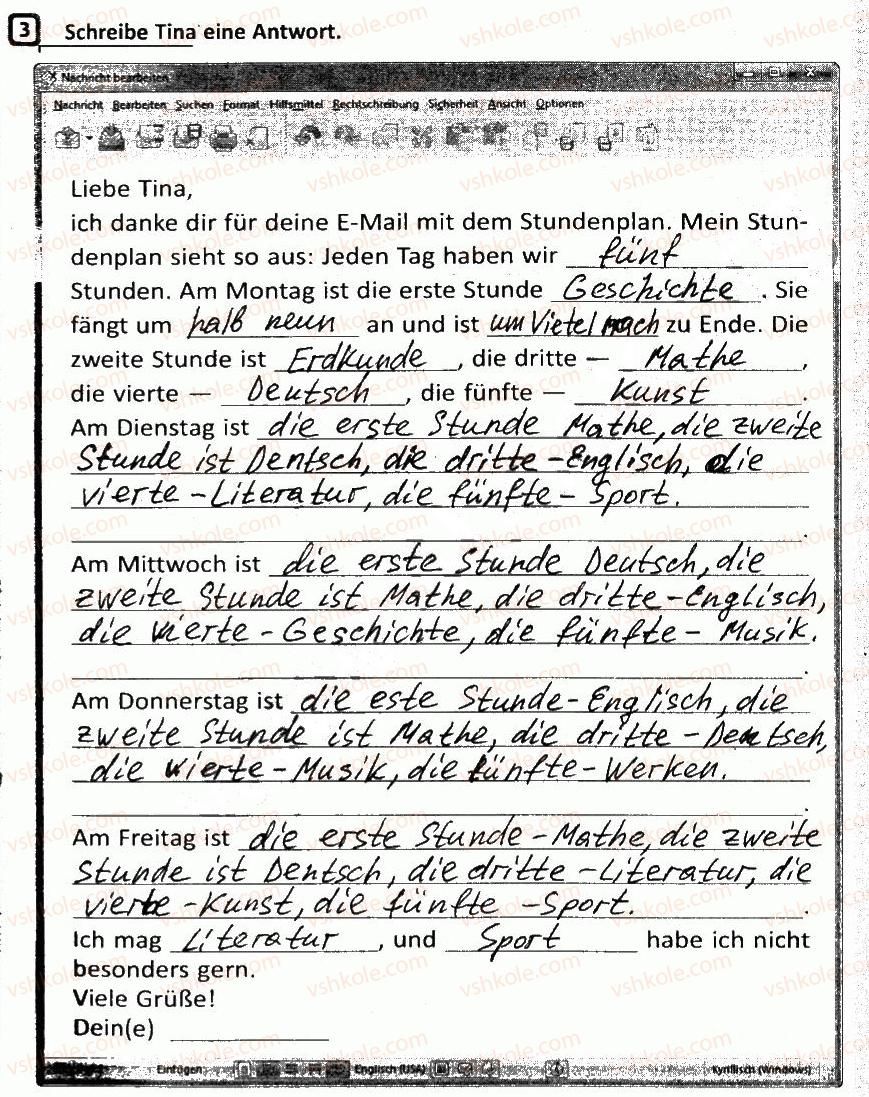 3 Schreibe Tina eine Antwort.
Nachricht bearbeiten
Nachricht Bearbeiten Suchen Format Hilfsmittel Rechtschreibung Sicherheit Ansicht Optionen
Liebe Tina,
ich danke dir für deine E-Mail mit dem Stundenplan. Mein Stun-
denplan sieht so aus: Jeden Tag haben wir fünf
Stunden. Am Montag ist die erste Stunde Geschichte. Sie
fängt um halb neun an und ist um Vietel nach zu Ende. Die
zweite Stunde ist Erdkunde, die dritte — Mathe,
die vierte — Deutsch, die fünfte — Kunst.
Am Dienstag ist die erste Stunde Mathe, die zweite
Stunde ist Dentsch, die dritte - Englisch, die
vierte - Literatur, die fünfte - Sport.
Am Mittwoch ist die erste Stunde Deutsch, die
zweite Stunde ist Mathe, die dritte - Englisch,
die vierte - Geschichte, die fünfte - Musik.
Am Donnerstag ist die este Stunde - Englisch, die
zweite Stunde ist Mathe, die dritte - Deutsch,
die vierte - Musik, die fünfte - Werken.
Am Freitag ist die erste Stunde - Mathe, die zweite
Stunde ist Dentsch, die dritte - Literatur, die
vierte - Kunst, die fünfte - Sport.
Ich mag Literatur, und Sport habe ich nicht
besonders gern.
Viele Grüße!
Dein(e)
Einfügen Englisch (USA) Kyrillisch (Windows)
vshkole.com